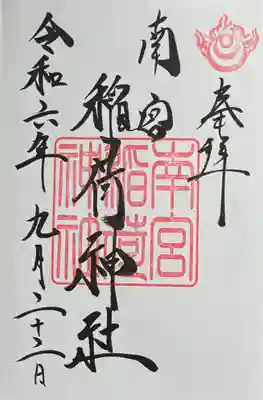 奉拝
南宮
稲荷神社
令和六年九月二十二日
南宮
稲荷
神社